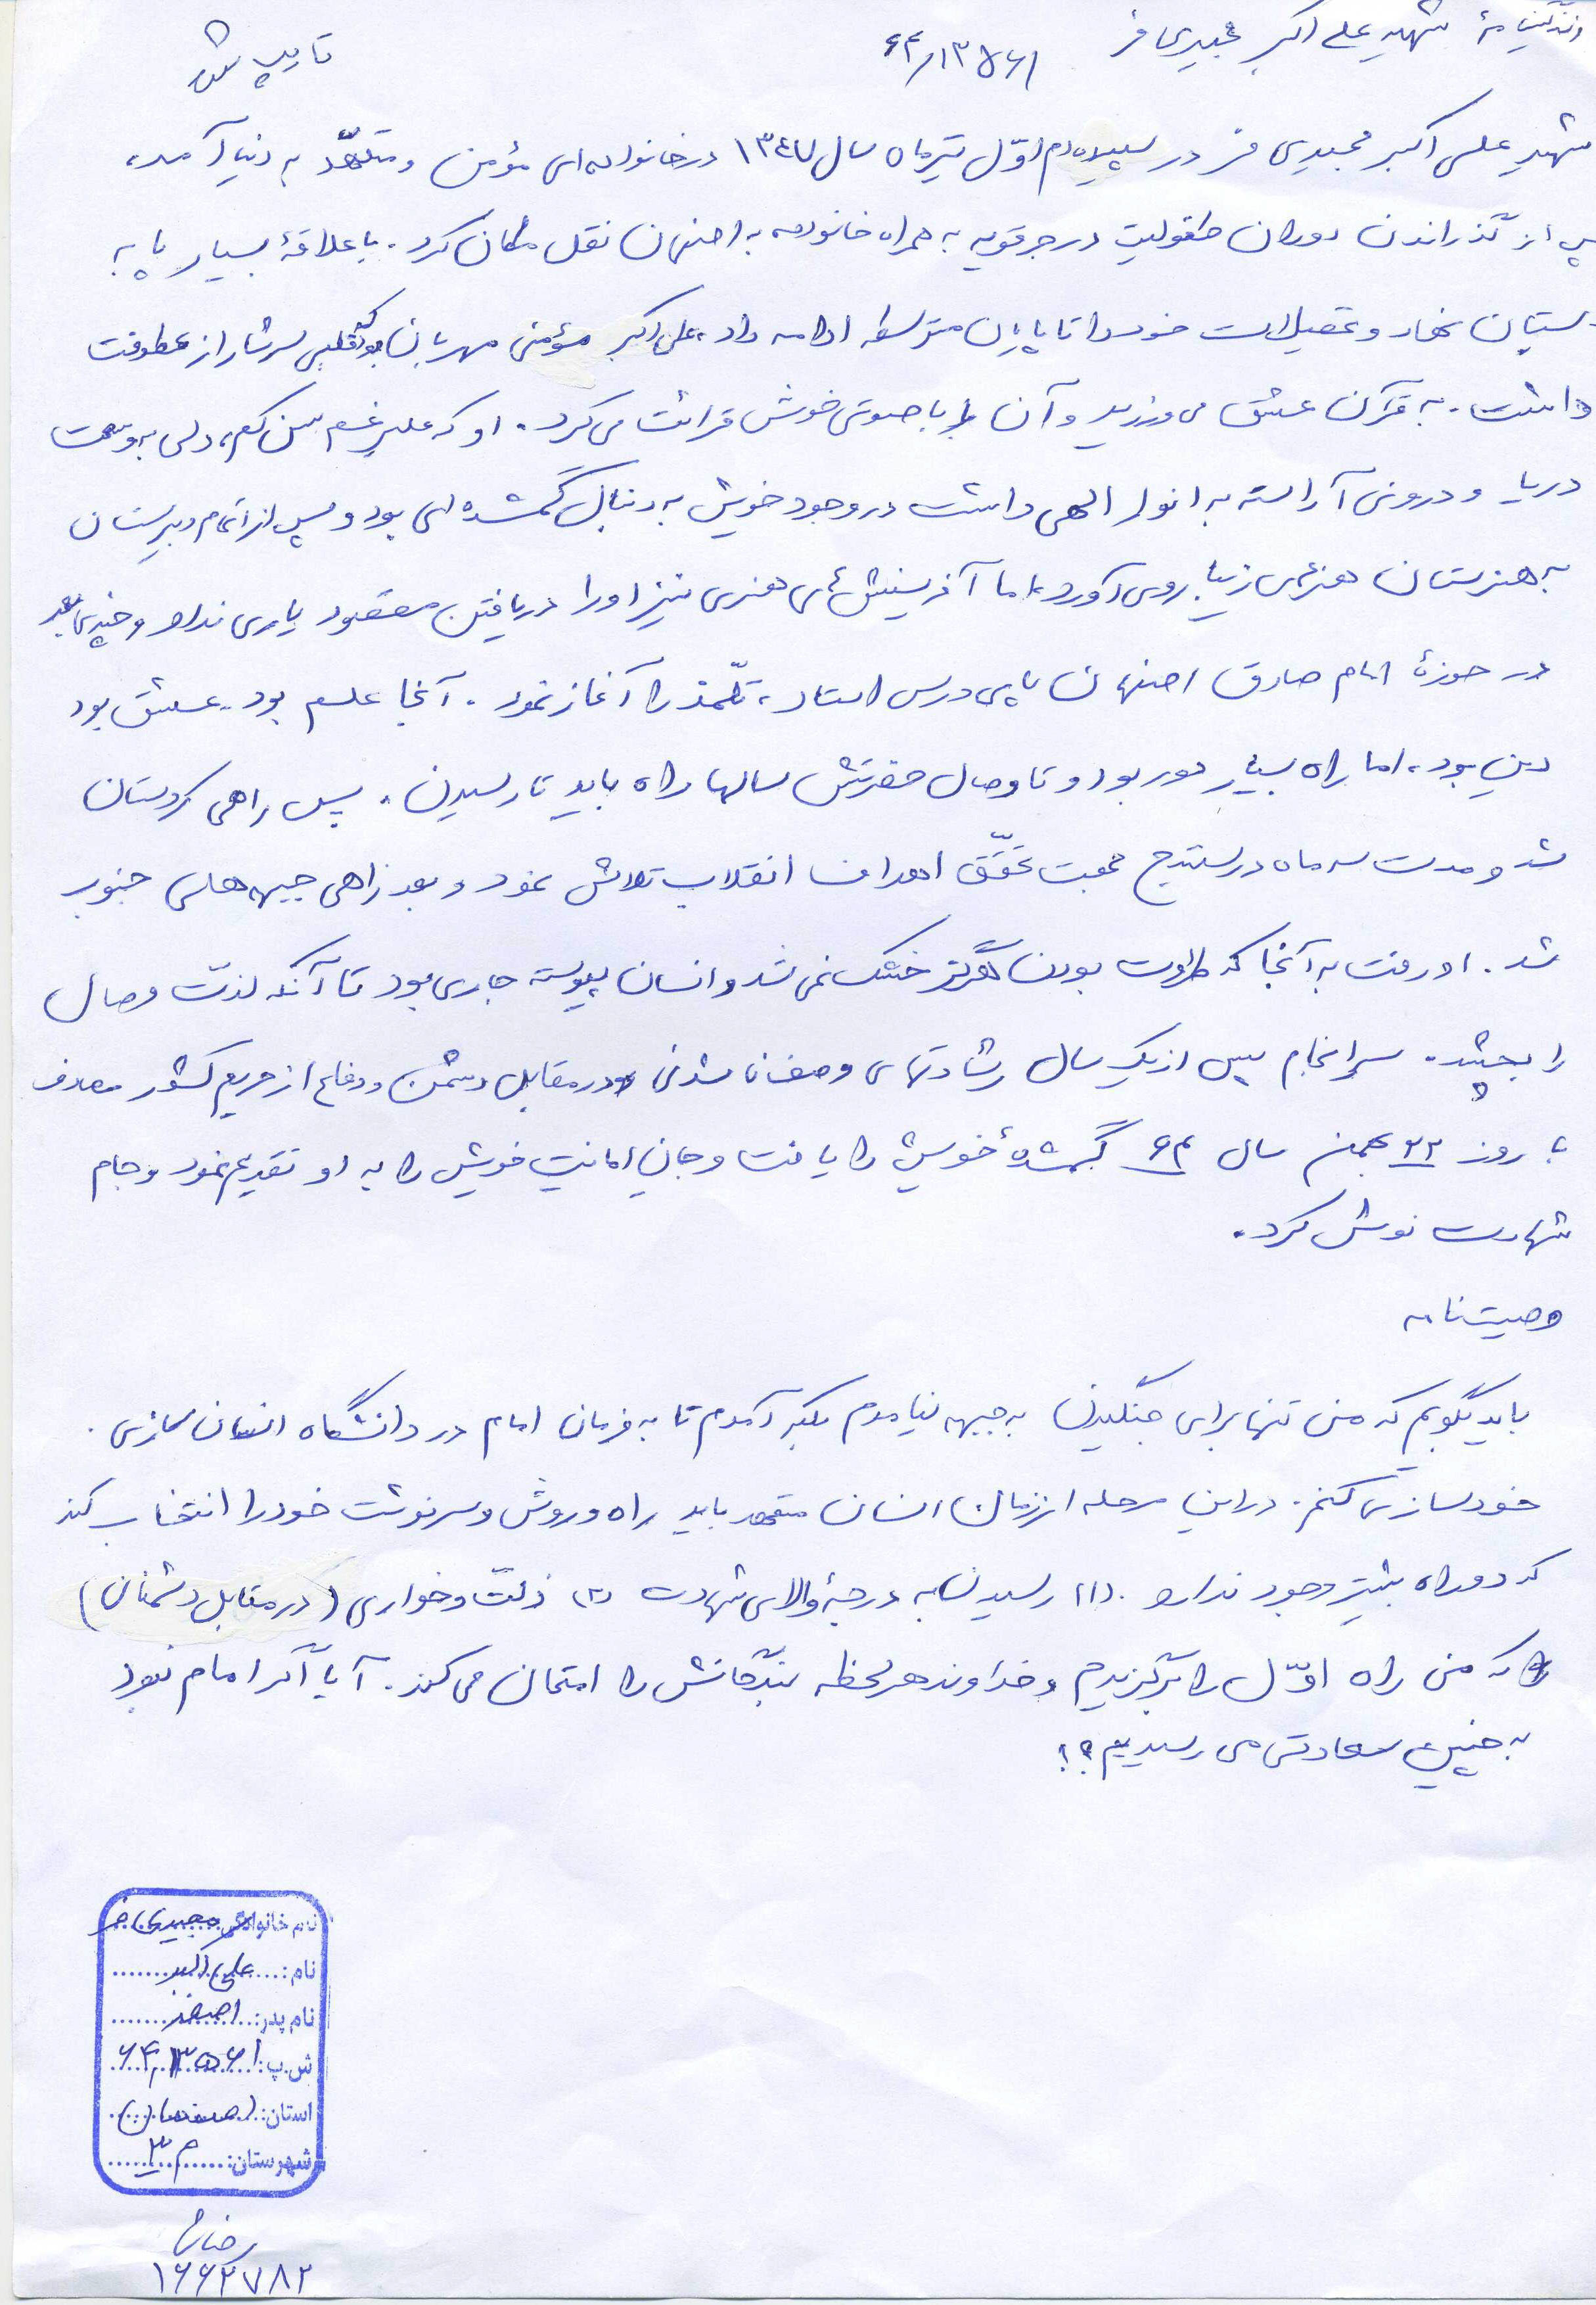 زندگینامهٔ شهید علی اکبر مجیدی فر ۶۴/۱۳۵۶۱ تایپ شد
شهید علی اکبر مجیدی فر در سپیده‌دم اوّل تیرماه سال ۱۳۴۷ در خانواده‌ای مؤمن و متعهّد به دنیا آمد،
پس از گذراندن دوران طفولیت در جرقویه به همراه خانواده به اصفهان نقل مکان کرد. با علاقهٔ بسیار پا به
دبستان نهاد و تحصیلات خود را تا پایان متوسطه ادامه داد، علی اکبر مؤمنی مهربان بود که قلبی سرشار از عطوفت
داشت. به قرآن عشق می ورزید و آن را با صوتی خوش قرائت می کرد. او که علیرغم سن کم، دلی به وسعت
دریا و درونی آراسته به انوار الهی داشت در وجود خویش به دنبال گمشده ای بود و پس از اتمام دبیرستان
به هنرستان هنرهای زیبا روی آورد، اما آفرینش های هنری نیز او را در یافتن مقصود یاری نداد و چندی بعد
در حوزهٔ امام صادق اصفهان پای درس استاد، تلمّذ را آغاز نمود. آنجا علم بود. عشق بود
دین بود، اما راه بسیار دور بود و تا وصال حضرتش سالها راه باید تا رسیدن. پس راهی کردستان
شد و مدت سه ماه در سنندج جهت تحقّق اهداف انقلاب تلاش نمود و بعد راهی جبهه های جنوب
شد. او رفت به آنجا که طراوت بودن هرگز خشک نمی شد و انسان پیوسته جاری بود تا آنکه لذّت وصال
را بچشد. سرانجام پس از یک سال رشادتهای وصف ناشدنی در مقابل دشمن و دفاع از حریم کشور مصادف
با روز ۲۲ بهمن سال ۶۴ گمشدهٔ خویش را یافت و جان امانت خویش را به او تقدیم نمود و جام
شهادت نوش کرد.
وصیت نامه
باید بگویم که من تنها برای جنگیدن به جبهه نیامدم بلکه آمدم تا به فرمان امام در دانشگاه انسان سازی.
خودسازی کنم. در این مرحله از زمان انسان متعهد باید راه و روش و سرنوشت خود را انتخاب کند
که دو راه بیشتر وجود ندارد. (۱) رسیدن به درجهٔ والای شهادت (۲) ذلّت و خواری (در مقابل دشمنان)
که من راه اوّل را برگزیدم و خداوند هر لحظه بندگانش را امتحان می کند. آیا اگر امام نبود
به چنین سعادتی می رسیدیم؟!
نام خانوادگی: مجیدی فر
نام: علی اکبر
نام پدر: اصغر
ش.پ: ۶۴,۱۳۵۶۱
استان: اصفهان
شهرستان: م ۳
۱۶۶۲۷۸۲